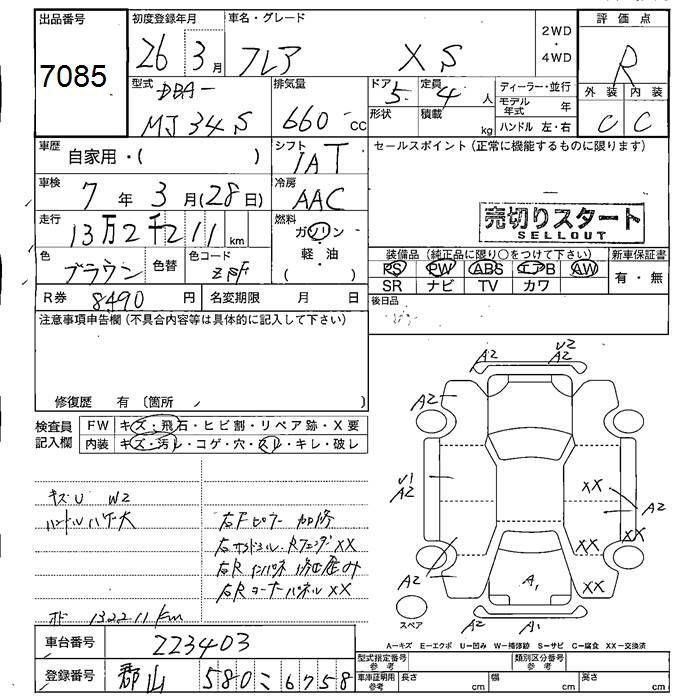 出品番号 7085
初度登録年月 26 3月
車名・グレード フレア XS
2WD・4WD
評価点 R
外装 C 内装 C
型式 DBA-MJ34S
排気量 660 cc
ドア 5 定員 4 人
形状 積載 kg
ディーラー・並行
モデル年式 年
ハンドル 左・右
車歴 自家用・( )
シフト IAT
セールスポイント(正常に機能するものに限ります)
車検 7年3月(28日)
冷房 AAC
売切りスタート
SELLOUT
走行 13万2千211 km
燃料 ガソリン・軽・油 ( )
色 ブラウン 色替 色コード
装備品(純正品に限り○をつけて下さい) 新車保証書
PS PW ABS エアB AW 有・無
SR ナビ TV カワ
R券 8490 円 名変期限 月 日
後日品
注意事項申告欄(不具合内容等は具体的に記入して下さい)
修復歴 有 〔箇所 〕
検査員記入欄
FW キズ・飛石・ヒビ割・リペア跡・X要
内装 キズ・汚レ・コゲ・穴・スレ・キレ・破レ
キズU W2
右Fピラー 加修
右R インパネ
右R コーナーパネル XX
132211km
A2 U2
A2
A2
U1
A2
XX
A2
XX XX
A2 XX
A1
A2 A1
スペア
A-キズ E-エクボ U-凹み W-補修跡 S-サビ C-腐食 XX-交換済
車台番号 223403
型式指定番号参考 類別区分番号参考
登録番号 郡山 580 こ 6758
車庫証明用参考 長さ cm 幅 cm 高さ cm